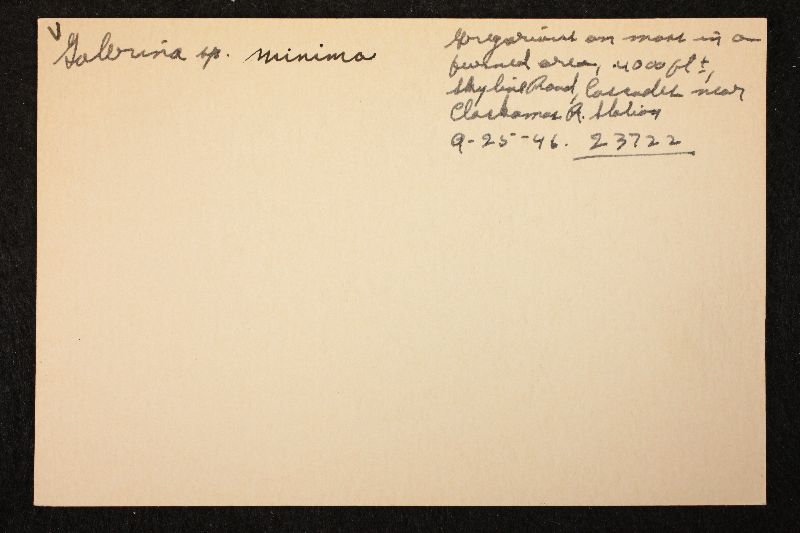 ✓ Galerina sp. minima
Gregarious on moss in a
burned area, 4000 ft ±,
Skyline Road, Cascades near
Clackamas R. Station
9-25-46. 23722